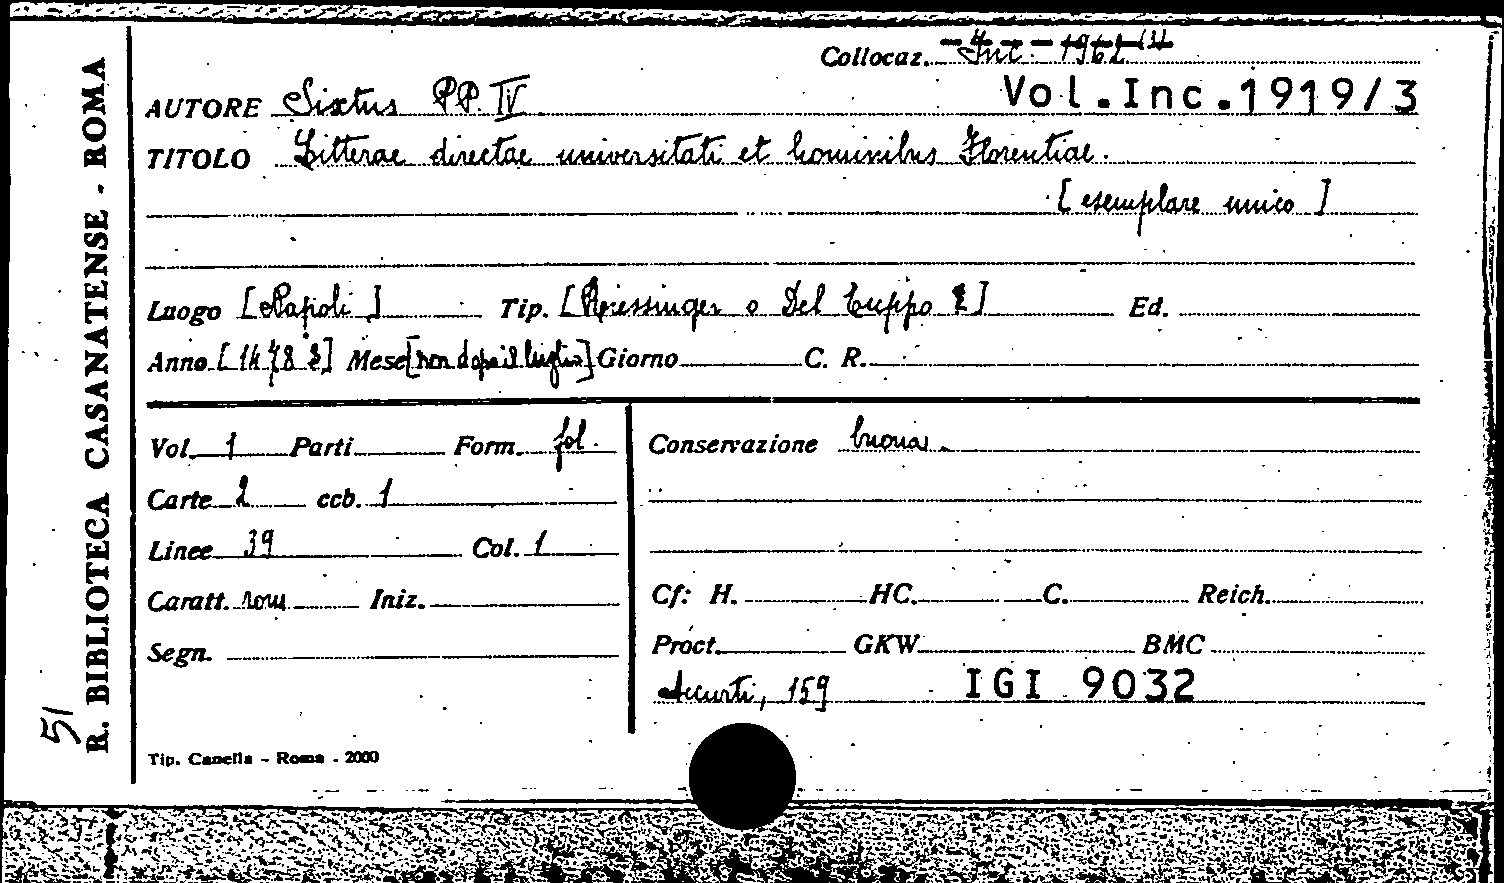 Collocaz. Inc. 1962 (3)
AUTORE Sixtus PP. IV Vol.Inc.1919/3
TITOLO Litterae directae universitati et hominibus Florentiae.
[esemplare unico]
Luogo [Napoli] Tip. [Riessinger o Del Tuppo ?] Ed.
Anno [1478 ?] Mese [non dopo il luglio] Giorno C. R.
Vol. 1 Parti Form. fol.
Carte 2 ccb. 1
Linee 39 Col. 1
Caratt. rom. Iniz.
Segn.
Conservazione buona.
Cf: H. HC. C. Reich.
Proct. GKW. BMC
Accurti, 159 IGI 9032
Tip. Canella - Roma - 2000
R. BIBLIOTECA CASANATENSE - ROMA
51